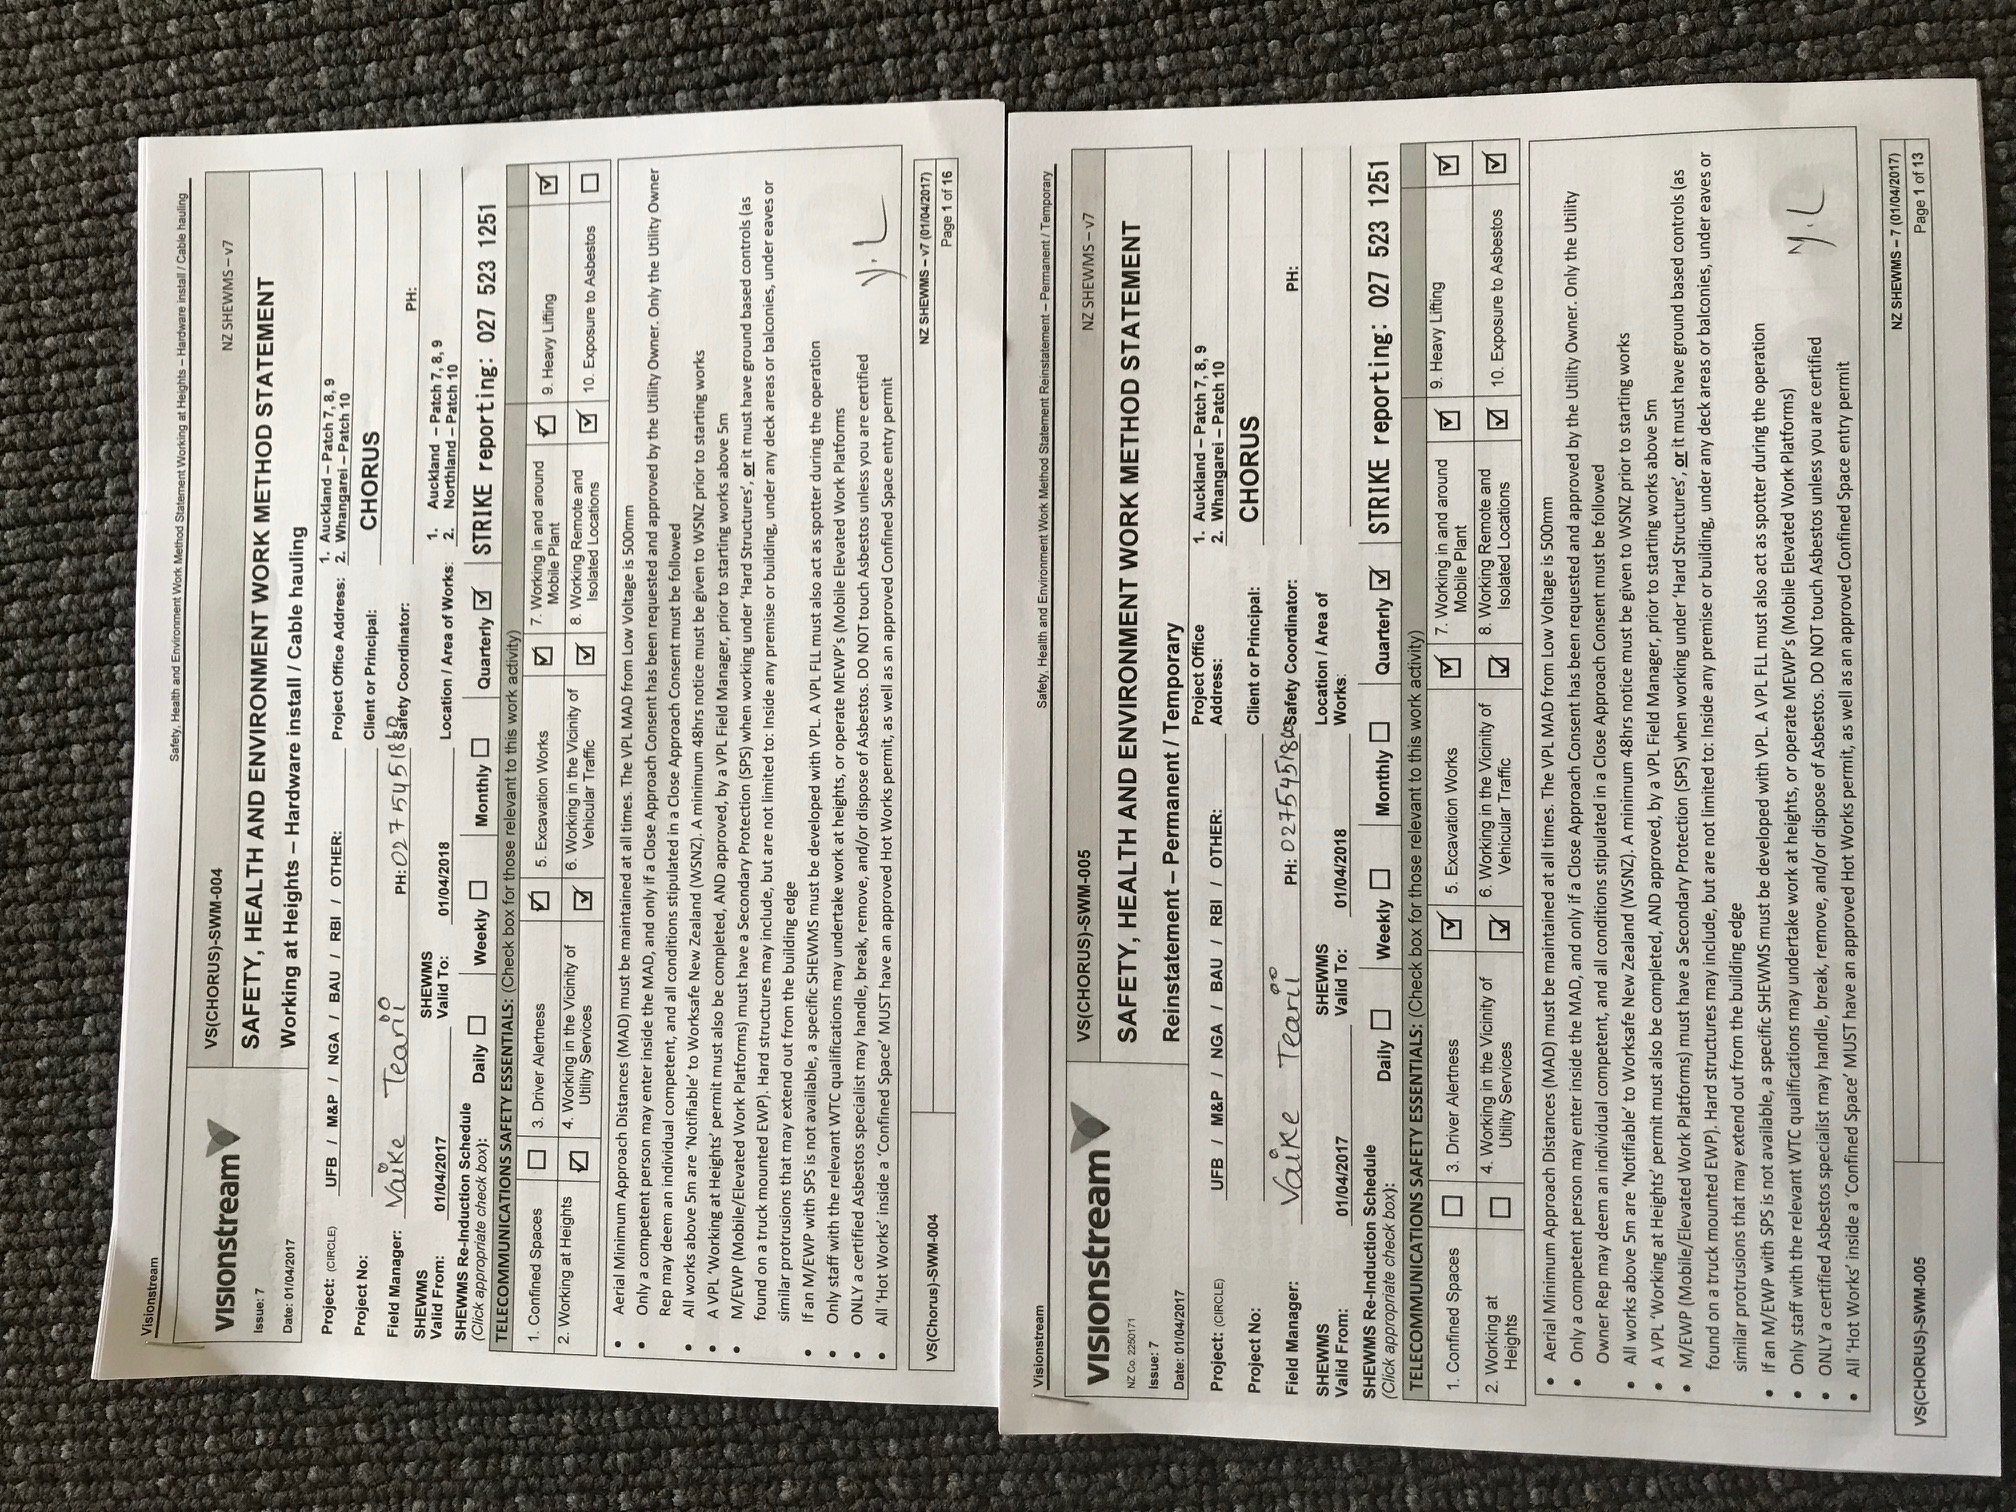 Visionstream
Safety, Health and Environment Work Method Statement Working at Heights – Hardware install / Cable hauling
visionstream
Issue: 7
Date: 01/04/2017
VS(CHORUS)-SWM-004
NZ SHEWMS – v7
SAFETY, HEALTH AND ENVIRONMENT WORK METHOD STATEMENT
Working at Heights – Hardware install / Cable hauling
Project: (CIRCLE) UFB / M&P / NGA / BAU / RBI / OTHER:
Project Office Address: 1. Auckland – Patch 7, 8, 9
2. Whangarei – Patch 10
Project No:
Client or Principal: CHORUS
Field Manager: Vaike Tearii PH: 027545186
Safety Coordinator: PH:
SHEWMS Valid From: 01/04/2017
SHEWMS Valid To: 01/04/2018
Location / Area of Works: 1. Auckland – Patch 7, 8, 9
2. Northland – Patch 10
SHEWMS Re-Induction Schedule
(Click appropriate check box): Daily ☐ Weekly ☐ Monthly ☐ Quarterly ☑ STRIKE reporting: 027 523 1251
TELECOMMUNICATIONS SAFETY ESSENTIALS: (Check box for those relevant to this work activity)
1. Confined Spaces ☐ 3. Driver Alertness ☑ 5. Excavation Works ☑ 7. Working in and around Mobile Plant ☑ 9. Heavy Lifting ☑
2. Working at Heights ☑ 4. Working in the Vicinity of Utility Services ☑ 6. Working in the Vicinity of Vehicular Traffic ☑ 8. Working Remote and Isolated Locations ☑ 10. Exposure to Asbestos ☐
• Aerial Minimum Approach Distances (MAD) must be maintained at all times. The VPL MAD from Low Voltage is 500mm
• Only a competent person may enter inside the MAD, and only if a Close Approach Consent has been requested and approved by the Utility Owner. Only the Utility Owner
Rep may deem an individual competent, and all conditions stipulated in a Close Approach Consent must be followed
• All works above 5m are 'Notifiable' to Worksafe New Zealand (WSNZ). A minimum 48hrs notice must be given to WSNZ prior to starting works
• A VPL 'Working at Heights' permit must also be completed, AND approved, by a VPL Field Manager, prior to starting works above 5m
• M/EWP (Mobile/Elevated Work Platforms) must have a Secondary Protection (SPS) when working under 'Hard Structures', or it must have ground based controls (as
found on a truck mounted EWP). Hard structures may include, but are not limited to: Inside any premise or building, under any deck areas or balconies, under eaves or
similar protrusions that may extend out from the building edge
• If an M/EWP with SPS is not available, a specific SHEWMS must be developed with VPL. A VPL FLL must also act as spotter during the operation
• Only staff with the relevant WTC qualifications may undertake work at heights, or operate MEWP's (Mobile Elevated Work Platforms
• ONLY a certified Asbestos specialist may handle, break, remove, and/or dispose of Asbestos. DO NOT touch Asbestos unless you are certified
• All 'Hot Works' inside a 'Confined Space' MUST have an approved Hot Works permit, as well as an approved Confined Space entry permit
Y.L
VS(Chorus)-SWM-004
NZ SHEWMS – v7 (01/04/2017)
Page 1 of 16
Visionstream
Safety, Health and Environment Work Method Statement Reinstatement – Permanent / Temporary
visionstream
NZ Co. 2250171
Issue: 7
Date: 01/04/2017
VS(CHORUS)-SWM-005
NZ SHEWMS – v7
SAFETY, HEALTH AND ENVIRONMENT WORK METHOD STATEMENT
Reinstatement – Permanent / Temporary
Project: (CIRCLE) UFB / M&P / NGA / BAU / RBI / OTHER:
Project Office Address: 1. Auckland – Patch 7, 8, 9
2. Whangarei – Patch 10
Project No:
Client or Principal: CHORUS
Field Manager: Vaike Tearii PH: 027545186
Safety Coordinator: PH:
SHEWMS Valid From: 01/04/2017
SHEWMS Valid To: 01/04/2018
Location / Area of Works:
SHEWMS Re-Induction Schedule
(Click appropriate check box): Daily ☐ Weekly ☐ Monthly ☐ Quarterly ☑ STRIKE reporting: 027 523 1251
TELECOMMUNICATIONS SAFETY ESSENTIALS: (Check box for those relevant to this work activity)
1. Confined Spaces ☐ 3. Driver Alertness ☑ 5. Excavation Works ☑ 7. Working in and around Mobile Plant ☑ 9. Heavy Lifting ☑
2. Working at Heights ☐ 4. Working in the Vicinity of Utility Services ☑ 6. Working in the Vicinity of Vehicular Traffic ☑ 8. Working Remote and Isolated Locations ☑ 10. Exposure to Asbestos ☑
• Aerial Minimum Approach Distances (MAD) must be maintained at all times. The VPL MAD from Low Voltage is 500mm
• Only a competent person may enter inside the MAD, and only if a Close Approach Consent has been requested and approved by the Utility Owner. Only the Utility
Owner Rep may deem an individual competent, and all conditions stipulated in a Close Approach Consent must be followed
• All works above 5m are 'Notifiable' to Worksafe New Zealand (WSNZ). A minimum 48hrs notice must be given to WSNZ prior to starting works
• A VPL 'Working at Heights' permit must also be completed, AND approved, by a VPL Field Manager, prior to starting works above 5m
• M/EWP (Mobile/Elevated Work Platforms) must have a Secondary Protection (SPS) when working under 'Hard Structures', or it must have ground based controls (as
found on a truck mounted EWP). Hard structures may include, but are not limited to: Inside any premise or building, under any deck areas or balconies, under eaves or
similar protrusions that may extend out from the building edge
• If an M/EWP with SPS is not available, a specific SHEWMS must be developed with VPL. A VPL FLL must also act as spotter during the operation
• Only staff with the relevant WTC qualifications may undertake work at heights, or operate MEWP's (Mobile Elevated Work Platforms)
• ONLY a certified Asbestos specialist may handle, break, remove, and/or dispose of Asbestos. DO NOT touch Asbestos unless you are certified
• All 'Hot Works' inside a 'Confined Space' MUST have an approved Hot Works permit, as well as an approved Confined Space entry permit
Y.L
VS(CHORUS)-SWM-005
NZ SHEWMS – 7 (01/04/2017)
Page 1 of 13